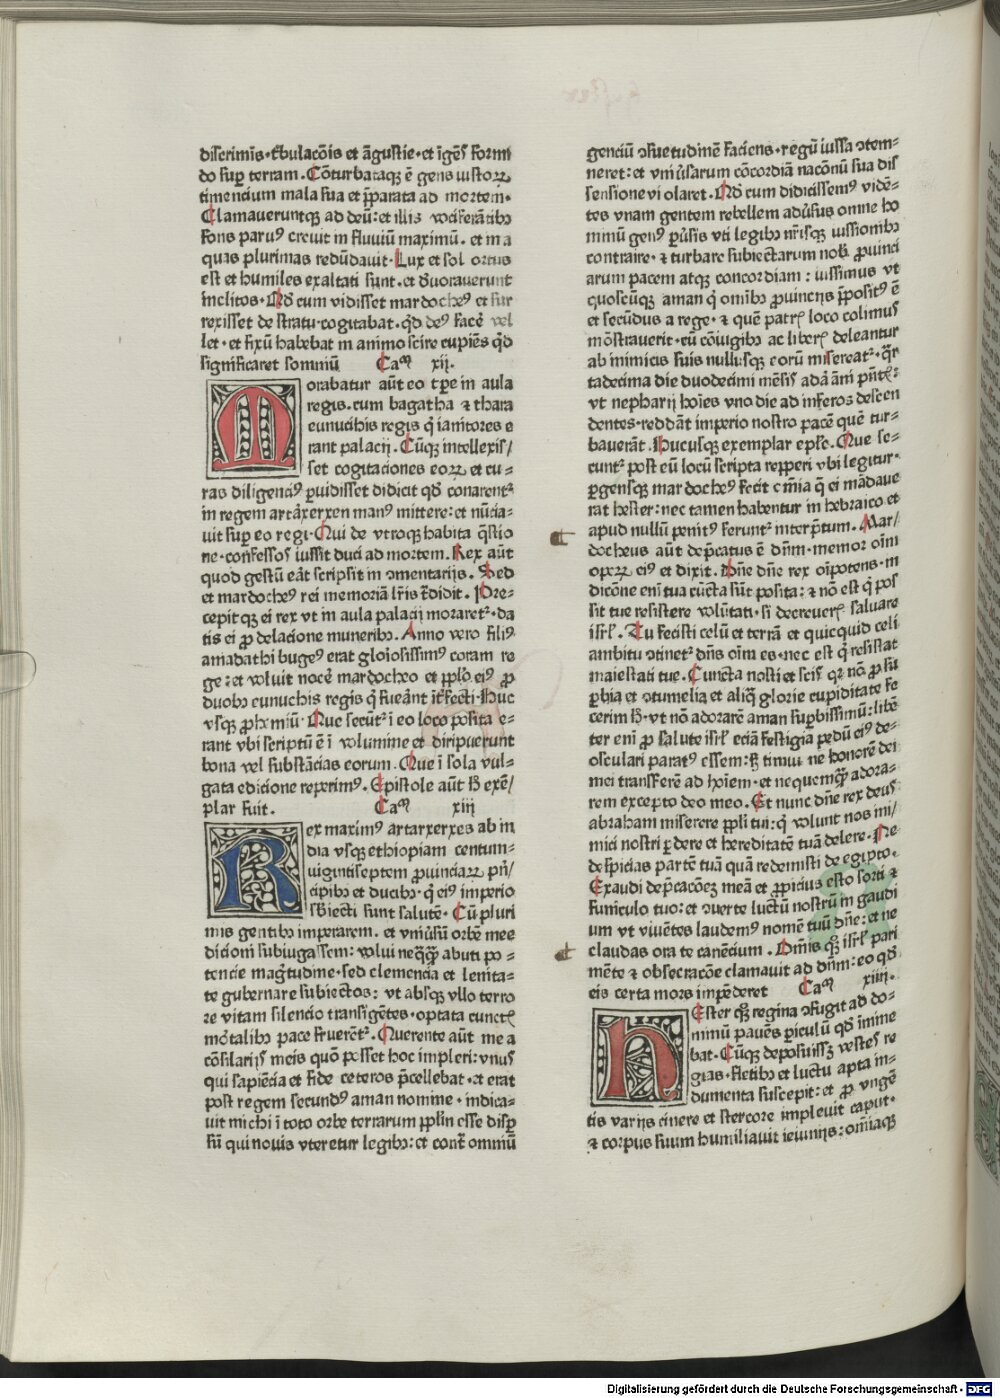 discrimīs·tͥbulacōis et āgustie·et īgēs formi
do suꝑ terram. Cōturbataqꝫ ē gens iustoꝝ
timencium mala sua et p̄parata ad mortem·
Clamaueruntqꝫ ad deū: et illis vociferātibꝫ
fons paruꝰ creuit in fluuiū maximū. et in a
quas plurimas redūdauit· Lux et sol ortus
est et humiles exaltati sunt. et d̓uorauerunt
inclitos· Qd̓ cum vidisset mardocheꝰ et sur
rexisset de stratu·cogitabat. qd̓ deꝰ facē vel
let· et fixū habebat in animo scire cupiēs qd̓
significaret somniū Caᵐ xii.
Morabatur aūt eo tꝑe in aula
regis. cum bagatha ⁊ thara
eunuchis regis q̄ ianitores e
rant palacij. Cūqꝫ intellexis/
set cogitaciones eoꝝ et cu-
ras diligenciꝰ ꝑuidisset didicit qd̓ conarentͬ
in regem artaxerxen manꝰ mittere: et nūcia-
uit suꝑ eo regi· Qui de vtroqꝫ habita q̄stio
ne·confessos iussit duci ad mortem. Rex aūt
quod gestū eāt scripsit in ꝯmentarijs. Sed
et mardocheꝰ rei memoriā lr̄is t̄didit. Pre-
cepitqꝫ ei rex vt in aula palacij moraretͬ·da
tis ei ꝓ delacione muneribꝫ. Anno vero filiꝰ
amadathi bugeꝰ erat gloiosissimꝰ coram re
ge: et voluit nocē mardocheo et ppl̓o eiꝰ ꝓ
duobꝫ eunuchis regis q̄ fueānt īt̓fecti· Huc
vsqꝫ ꝓhꝫmiū· Que secūtͬ ī eo loco posita e-
rant vbi scriptū ē ī volumine et diripuerunt
bona vel substācias eorum. Que ī sola vul-
gata edicione reperimꝰ. Epistole aūt hꝫ exē/
plar fuit. Caᵐ xiij
Rex maximꝰ artarxerxes ab in
dia vsqꝫ ethiopiam centum-
uigintiseptem ꝓuinciaꝝ pn̄/
cipibꝫ et ducabꝫ· q̄ eiꝰ imperio
sb̓iecti sunt salutē· Cū pluri
mis gentibꝫ imperarem. et vniūsū orbē mee
dicioni subiugassem: volui neqq̄qꝫ abuti po-
tencie mag̓tudine·sed clemencia et lenita-
te gubernare subiectos: vt absqꝫ vllo terro
re vitam silencio transigētes·optata cunctꝭ
mōtalibꝫ pace fruerētͬ. Querente aūt me a
cōsilarijs meis quō posset hoc impleri: vnus
qui sapiēcia et fide ceteros p̄cellebat·et erat
post regem secundꝰ aman nomine·indica-
uit michi ī toto orbe terrarum ppl̓m esse disꝑ
sū qui nouis vteretur legibꝫ: et cont̄ omniū
genciū ꝯsuetudinē faciens·regū iussa ꝯtem-
neret: et vniūsarum cōcordiā nacōnū sua dis
sensione violaret. Qd̓ cum didicissemꝰ vidē-
tes vnam gentem rebellem adūsus omne ho
minū genꝰ ꝑūsis vti legibꝫ nr̄isqꝫ iussionibꝫ
contraire·⁊ turbare subiectarum nob̓ ꝓuinci
arum pacem atqꝫ concordiam: iussimus vt
quoscūqꝫ aman q̄ omibꝫ ꝓuincijs p̄positꝰ ē
et secūdus a rege·⁊ quē patrꝭ loco colimus
mōstrauerit·cū cōiugibꝫ ac liberꝭ deleantur
ab inimicis suis nullusqꝫ eorū misereatͬ·q̄r
tadecima die duodecimi mēsis adā āni pn̄tꝭ:
vt nepharij hoīes vno die ad inferos descen
dentes·reddāt imperio nostro pacē quē tur-
bauerāt. Hucusqꝫ exemplar epl̓e. Que se-
cuntͬ post eū locū scripta repperi vbi legitur·
ꝑgensqꝫ mardocheꝰ fecit oīnia q̄ ei mādaue
rat hester: nec tamen habentur in hebraico et
apud nullū penitꝰ feruntͬ interp̄tum. Mar/
docheus aūt dep̄catus ē dn̄m·memor oīm
opeꝝ eiꝰ et dixit. Dn̄e dn̄e rex oīpotens·in
dicōne eni̅ tua cūcta sūt posita: ⁊ nō est q̄ pos
sit tue resistere volūtati·si decreuerꝭ saluare
isrl̓. Tu fecisti celū et terrā et quicquid celi
ambitu ꝯtinetͬ dn̄s oīm es·nec est q̄ resistat
maiestati tue. Cuncta nosti et scis qꝛ nō ꝓ su
ꝑbia et ꝯtumelia et aliq̄ glorie cupiditate fe
cerim hꝫ·vt nō adorarē aman suꝑbissimū: libē
ter eni̅ ꝓ salute isrl̓ eciā festigia pedū eiꝰ de-
osculari paratꝰ essem: sꝫ timui ne honorē dei
mei transferē ad hoīem·et nequemqꝫ adora-
rem excepto deo meo. Et nunc dn̄e rex deus
abraham miserere ppl̓i tui: q̄ volunt nos ini/
mici nostri ꝑdere et hereditatē tuā delere. Ne
despicias partē tuā quā redemisti de egipto.
Exaudi dep̄cacōeꝫ meā et ꝓpicius esto sorti ⁊
funiculo tuo: et ꝯuerte luctū nostrū in gaudi
um vt viuētes laudemꝰ nomē tuū dn̄e: et ne
claudas ora te canēcium. Om̄is qꝫ isrl̓ pari
mēte ⁊ obsecracōe clamauit ad dn̄m: eo qd̓
eis certa mors impēderet Caᵐ xiiij.
HEster qꝫ regina ꝯfugit ad do-
minū pauēs periculū qd̓ imine
bat. Cūqꝫ deposuissꝫ vestes re
gias·fletibꝫ et luctu apta in-
dumenta suscepit: et ꝓ vngē
tis varijs cinere et stercore impleuit caput.
⁊ corpus suum humiliauit ieiunijs: om̄iaqꝫ
Digitalisierung gefördert durch die Deutsche Forschungsgemeinschaft - DFG